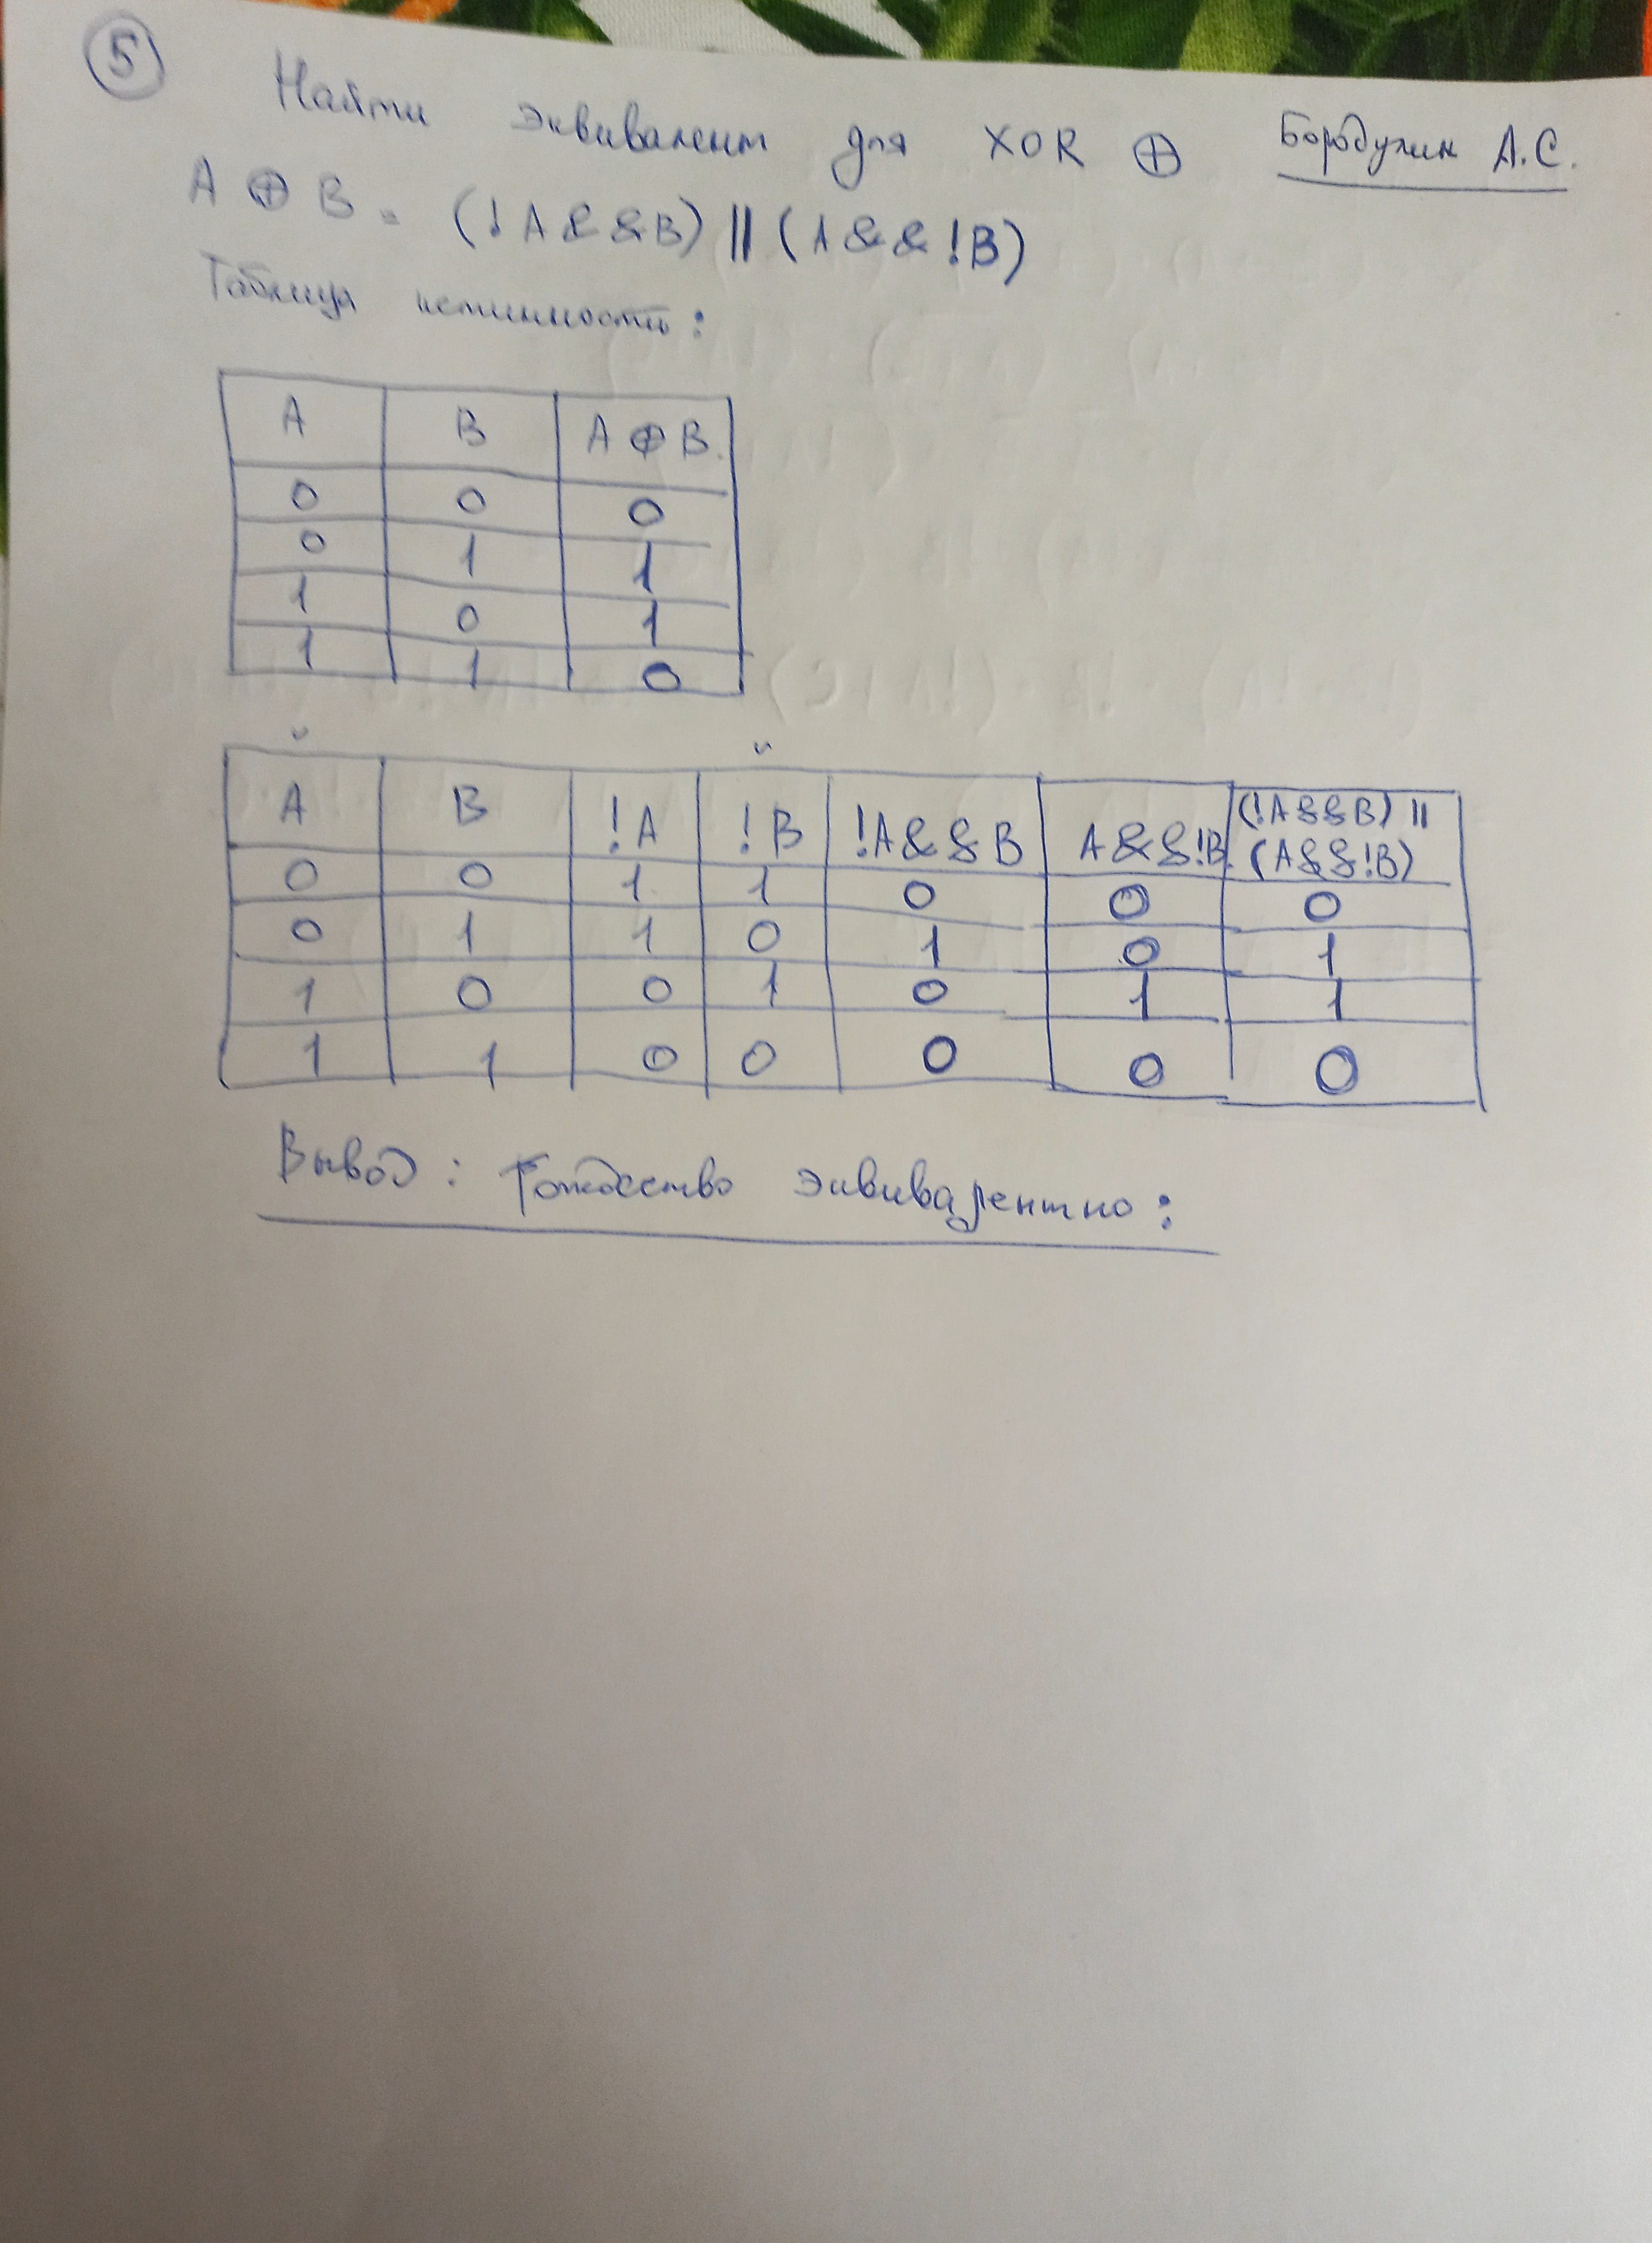 5
Найти эквивалент для XOR ⊕ Бородулин А.С.
A ⊕ B = (!A&&B) || (A&&!B)
Таблица истинности:
A B A ⊕ B
0 0 0
0 1 1
1 0 1
1 1 0
A B !A !B !A&&B A&&!B (!A&&B) || (A&&!B)
0 0 1 1 0 0 0
0 1 1 0 1 0 1
1 0 0 1 0 1 1
1 1 0 0 0 0 0
Вывод: Тождество эквивалентно: